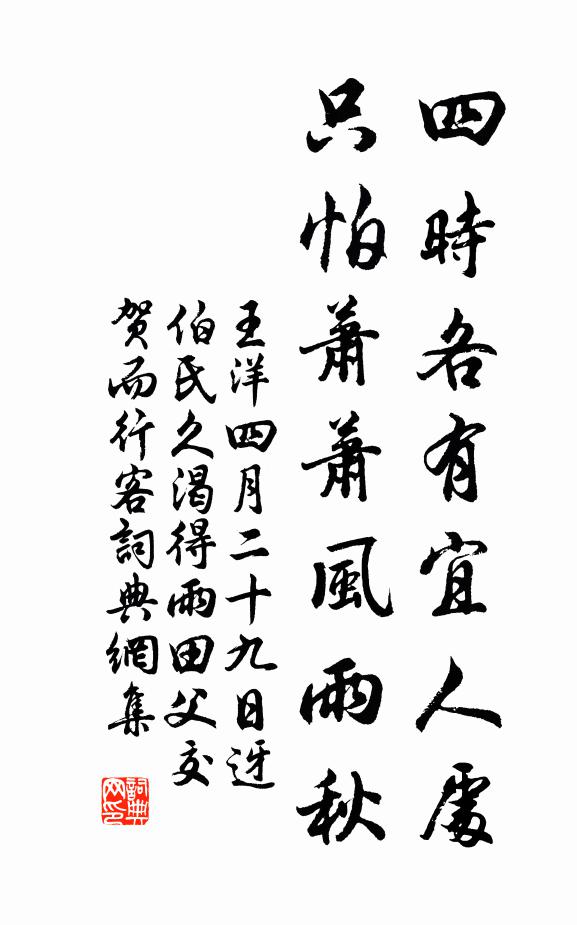 四時各有宜人處
只怕蕭蕭風雨秋
王洋四月二十九日迓
伯氏久渴得雨田父交
賀而行客詞典網集
詞典
网印